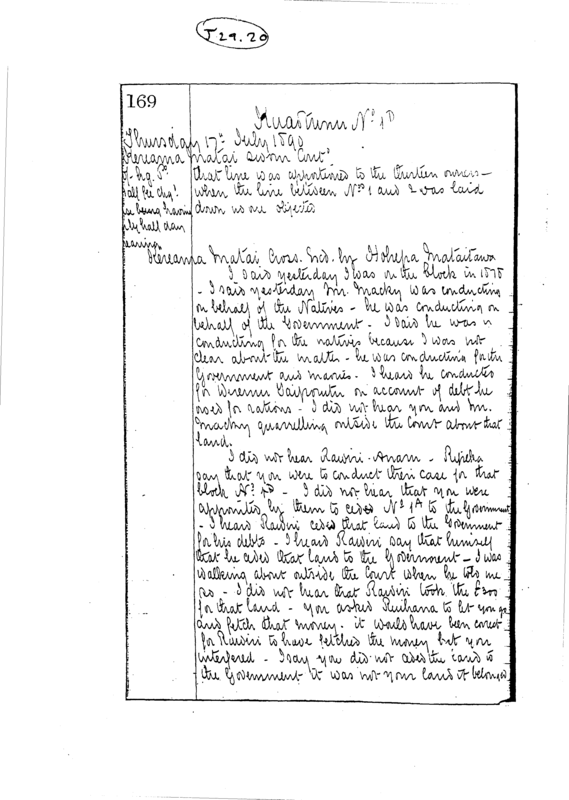 J 29.20
169
Kuaotunu No 1D
Thursday 17th July 1890
Hereama Matai sworn Contd
that line was apportioned to the thirteen owners -
when the line between Nos 1 and 2 was laid
down no one objected
half fee chgd
being having
only half day
hearing
Hereama Matai Cross. Exd. by Hohepa Mataitawa
I said yesterday I was on the block in 1878
- I said yesterday Mr. Macky was conducting
on behalf of the Natives - he was conducting on
behalf of the Government - I said he was
conducting for the natives because I was not
clear about the matter - he was conducting for the
Government and maories. I heard he conducted
for on account of debt he
owed for rations - I did not hear you and Mr.
Macky quarrelling outside the Court about that
land.
I did not hear Rawiri - Anaru - Ripeka
say that you were to conduct their case for that
block No 1D - I did not hear that you were
appointed by them to cede No 1A to the Government
- I heard Rawiri ceded that land to the Government
for his debts - I heard Rawiri say that himself
that he cedes that land to the Government - I was
walking about outside the Court when he told me
so - I did not hear that Rawiri took the £200
for that land - you asked Ruihana to let you go
and fetch that money. it would have been correct
for Rawiri to have fetched the money but you
interfered - I say you did not cede the land to
the Government it was not your land it belonged